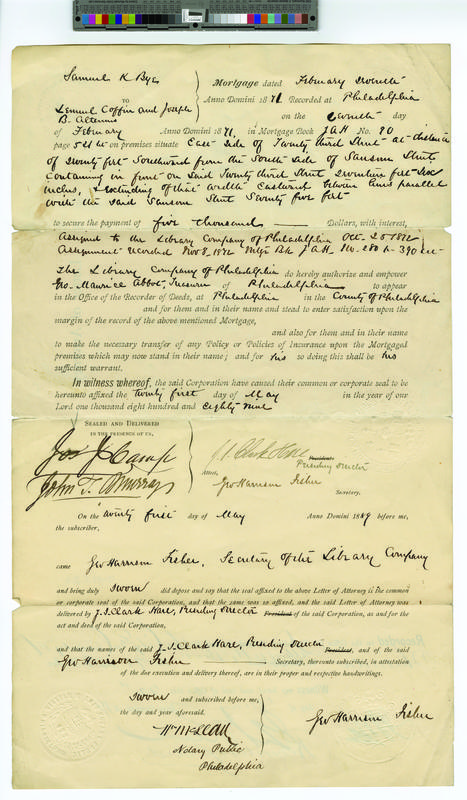 Samuel K Bye
TO
Lemuel Coffin and Joseph
B. Altemus
Mortgage dated February Seventh
Anno Domini 1871 Recorded at Philadelphia
on the Seventh day
of February Anno Domini 1871, in Mortgage Book JAH No. 90
page 544 &c on premises situate East side of Twenty third Street at distance
of Seventy feet Southward from the South side of Sansom Street
Containing in front on said Twenty third Street Seventeen feet Six
inches, & extending of that width Eastward between lines parallel
with the said Sansom Street Seventy five feet
to secure the payment of five thousand Dollars, with interest,
Assigned to the Library Company of Philadelphia Oct. 25 1872
Assignment recorded Nov 8, 1872 Mtge Bk JAH No. 280 p. 390 &c
The Library Company of Philadelphia do hereby authorize and empower
Geo. Maurice Abbot, Treasurer of Philadelphia to appear
in the Office of the Recorder of Deeds, at Philadelphia in the County of Philadelphia
and for them and in their name and stead to enter satisfaction upon the
margin of the record of the above mentioned Mortgage,
and also for them and in their name
to make the necessary transfer of any Policy or Policies of Insurance upon the Mortgaged
premises which may now stand in their name; and for his so doing this shall be his
sufficient warrant.
In witness whereof, the said Corporation have caused their common or corporate seal to be
hereunto affixed the twenty first day of May in the year of our
Lord one thousand eight hundred and eighty nine
SEALED AND DELIVERED
IN THE PRESENCE OF US,
Jos J Camp
John T. Murray
J. I. Clark Hare
President
Presiding Director
Attest,
Geo Harrison Fisher
Secretary.
On the twenty first day of May Anno Domini 1889 before me,
the subscriber,
came Geo Harrison Fisher, Secretary of the Library Company
and being duly sworn did depose and say that the seal affixed to the above Letter of Attorney is the common
or corporate seal of the said Corporation, and that the same was so affixed, and the said Letter of Attorney was
delivered by J. I. Clark Hare, Presiding Director President of the said Corporation, as and for the
act and deed of the said Corporation,
and that the names of the said J. I. Clark Hare, Presiding Director President, and of the said
Geo Harrison Fisher Secretary, thereunto subscribed, in attestation
of the due execution and delivery thereof, are in their proper and respective handwritings.
Sworn and subscribed before me,
the day and year aforesaid.
Notary Public
Philadelphia
Geo Harrison Fisher